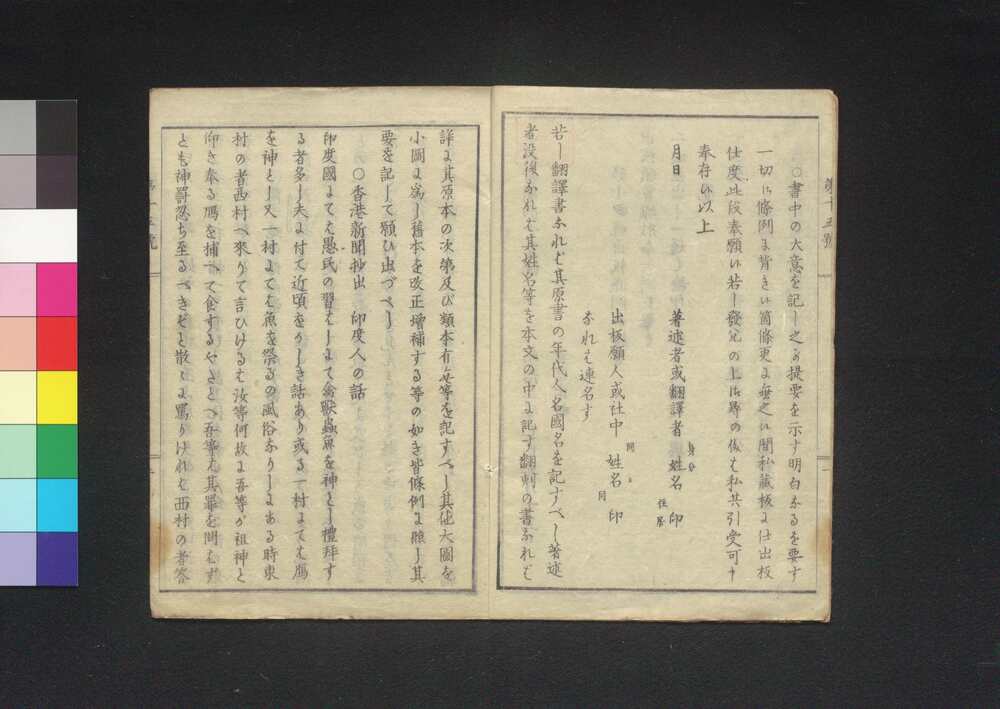 ○書中の大意を記し之ヶ提要を示す明白なるを要す
一切ハ條例に背きい箇條更に無之い間私藏板に仕出板
仕度此段奉願い若し發兌の上御尋の儀は私共引受可申
奉存い以上
月日
著述者或翻譯者 姓名 印
身分
住所
出板願人或社中 姓名 印
同
同
なれは連名す
若し翻譯書なれば其原書の年代人名國名を記すべし著述
者没後なれは其姓名等を本文の中に記す翻刻の書なれば
第十五號
詳に其原本の次第及び類本有無等を記すべし其他大圖を
小圖に爲し舊本を改正増補する等の如き皆條例に照し其
要を記して願ひ出づべし
○香港新聞抄出 印度人の話
印度國にては愚民の習はしにて禽獸蟲魚を神とし禮拜す
る者多し夫に付て近頃をかしき話あり或る一村にては鴈
を神とし又一村にては魚を祭るの風俗なりしにある時東
村の者西村へ來りて言ひけるは汝等何故に吾等が祖神と
仰き奉る鴈を捕へて食するやさとへ吾等は其罪を問はず
とも神罰忽ち至るべきぞと散〻に罵りけれは西村の者答
第十五號